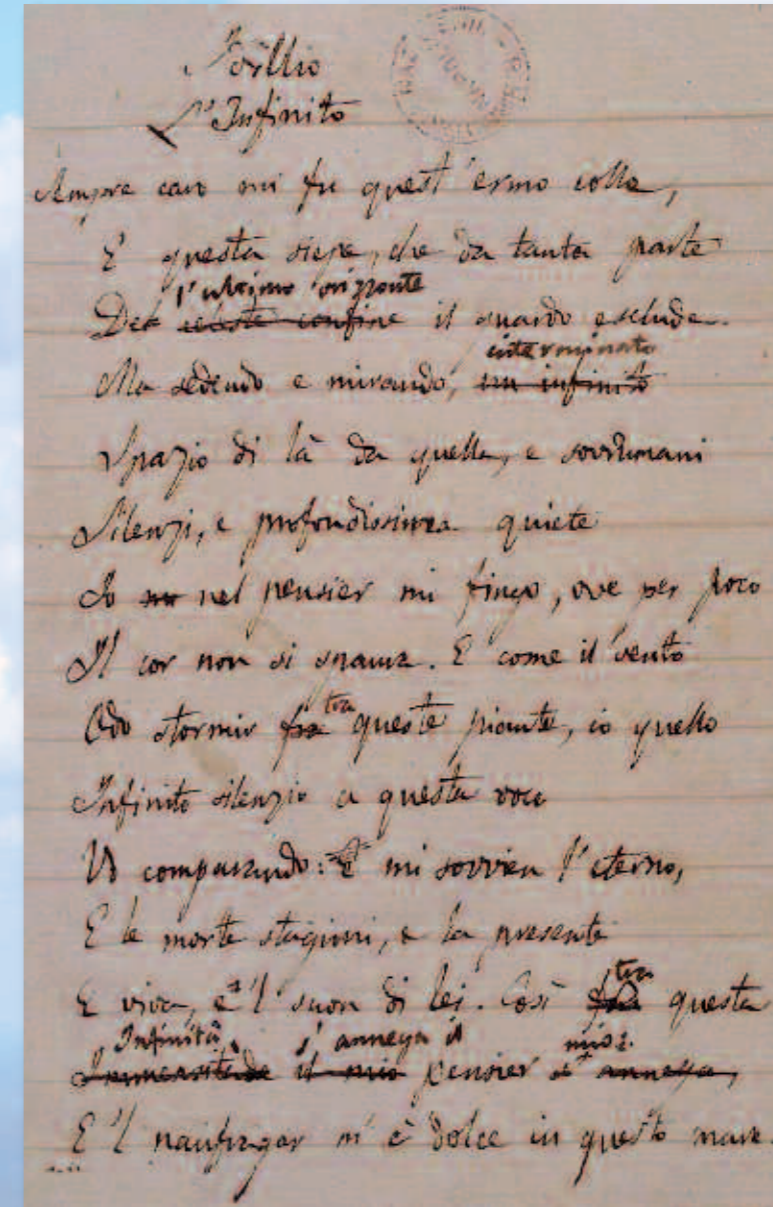 Idillio
L'Infinito
Sempre caro mi fu quest'ermo colle,
E questa siepe, che da tanta parte
l'ultimo orizzonte
Del celeste confine il guardo esclude.
interminato
Ma sedendo e mirando, un infinito
Spazio di là da quella, e sovrumani
Silenzi, e profondissima quiete
Io nel pensier mi fingo, ove per poco
Il cor non si spaura. E come il vento
tra
Odo stormir fra queste piante, io quello
Infinito silenzio a questa voce
Vo comparando: E mi sovvien l'eterno,
E le morte stagioni, e la presente
tra
E viva, e 'l suon di lei. Così fra questa
Infinità s'annega il mio
Immensitade il mio pensier s'annega,
E 'l naufragar m'è dolce in questo mare.